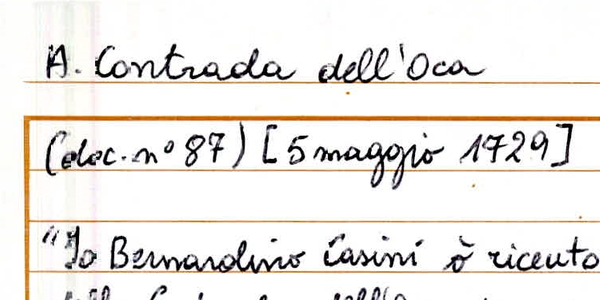 A. Contrada dell'Oca
(doc. n° 87) [5 maggio 1729]
"Io Bernardino Casini ò riceuto